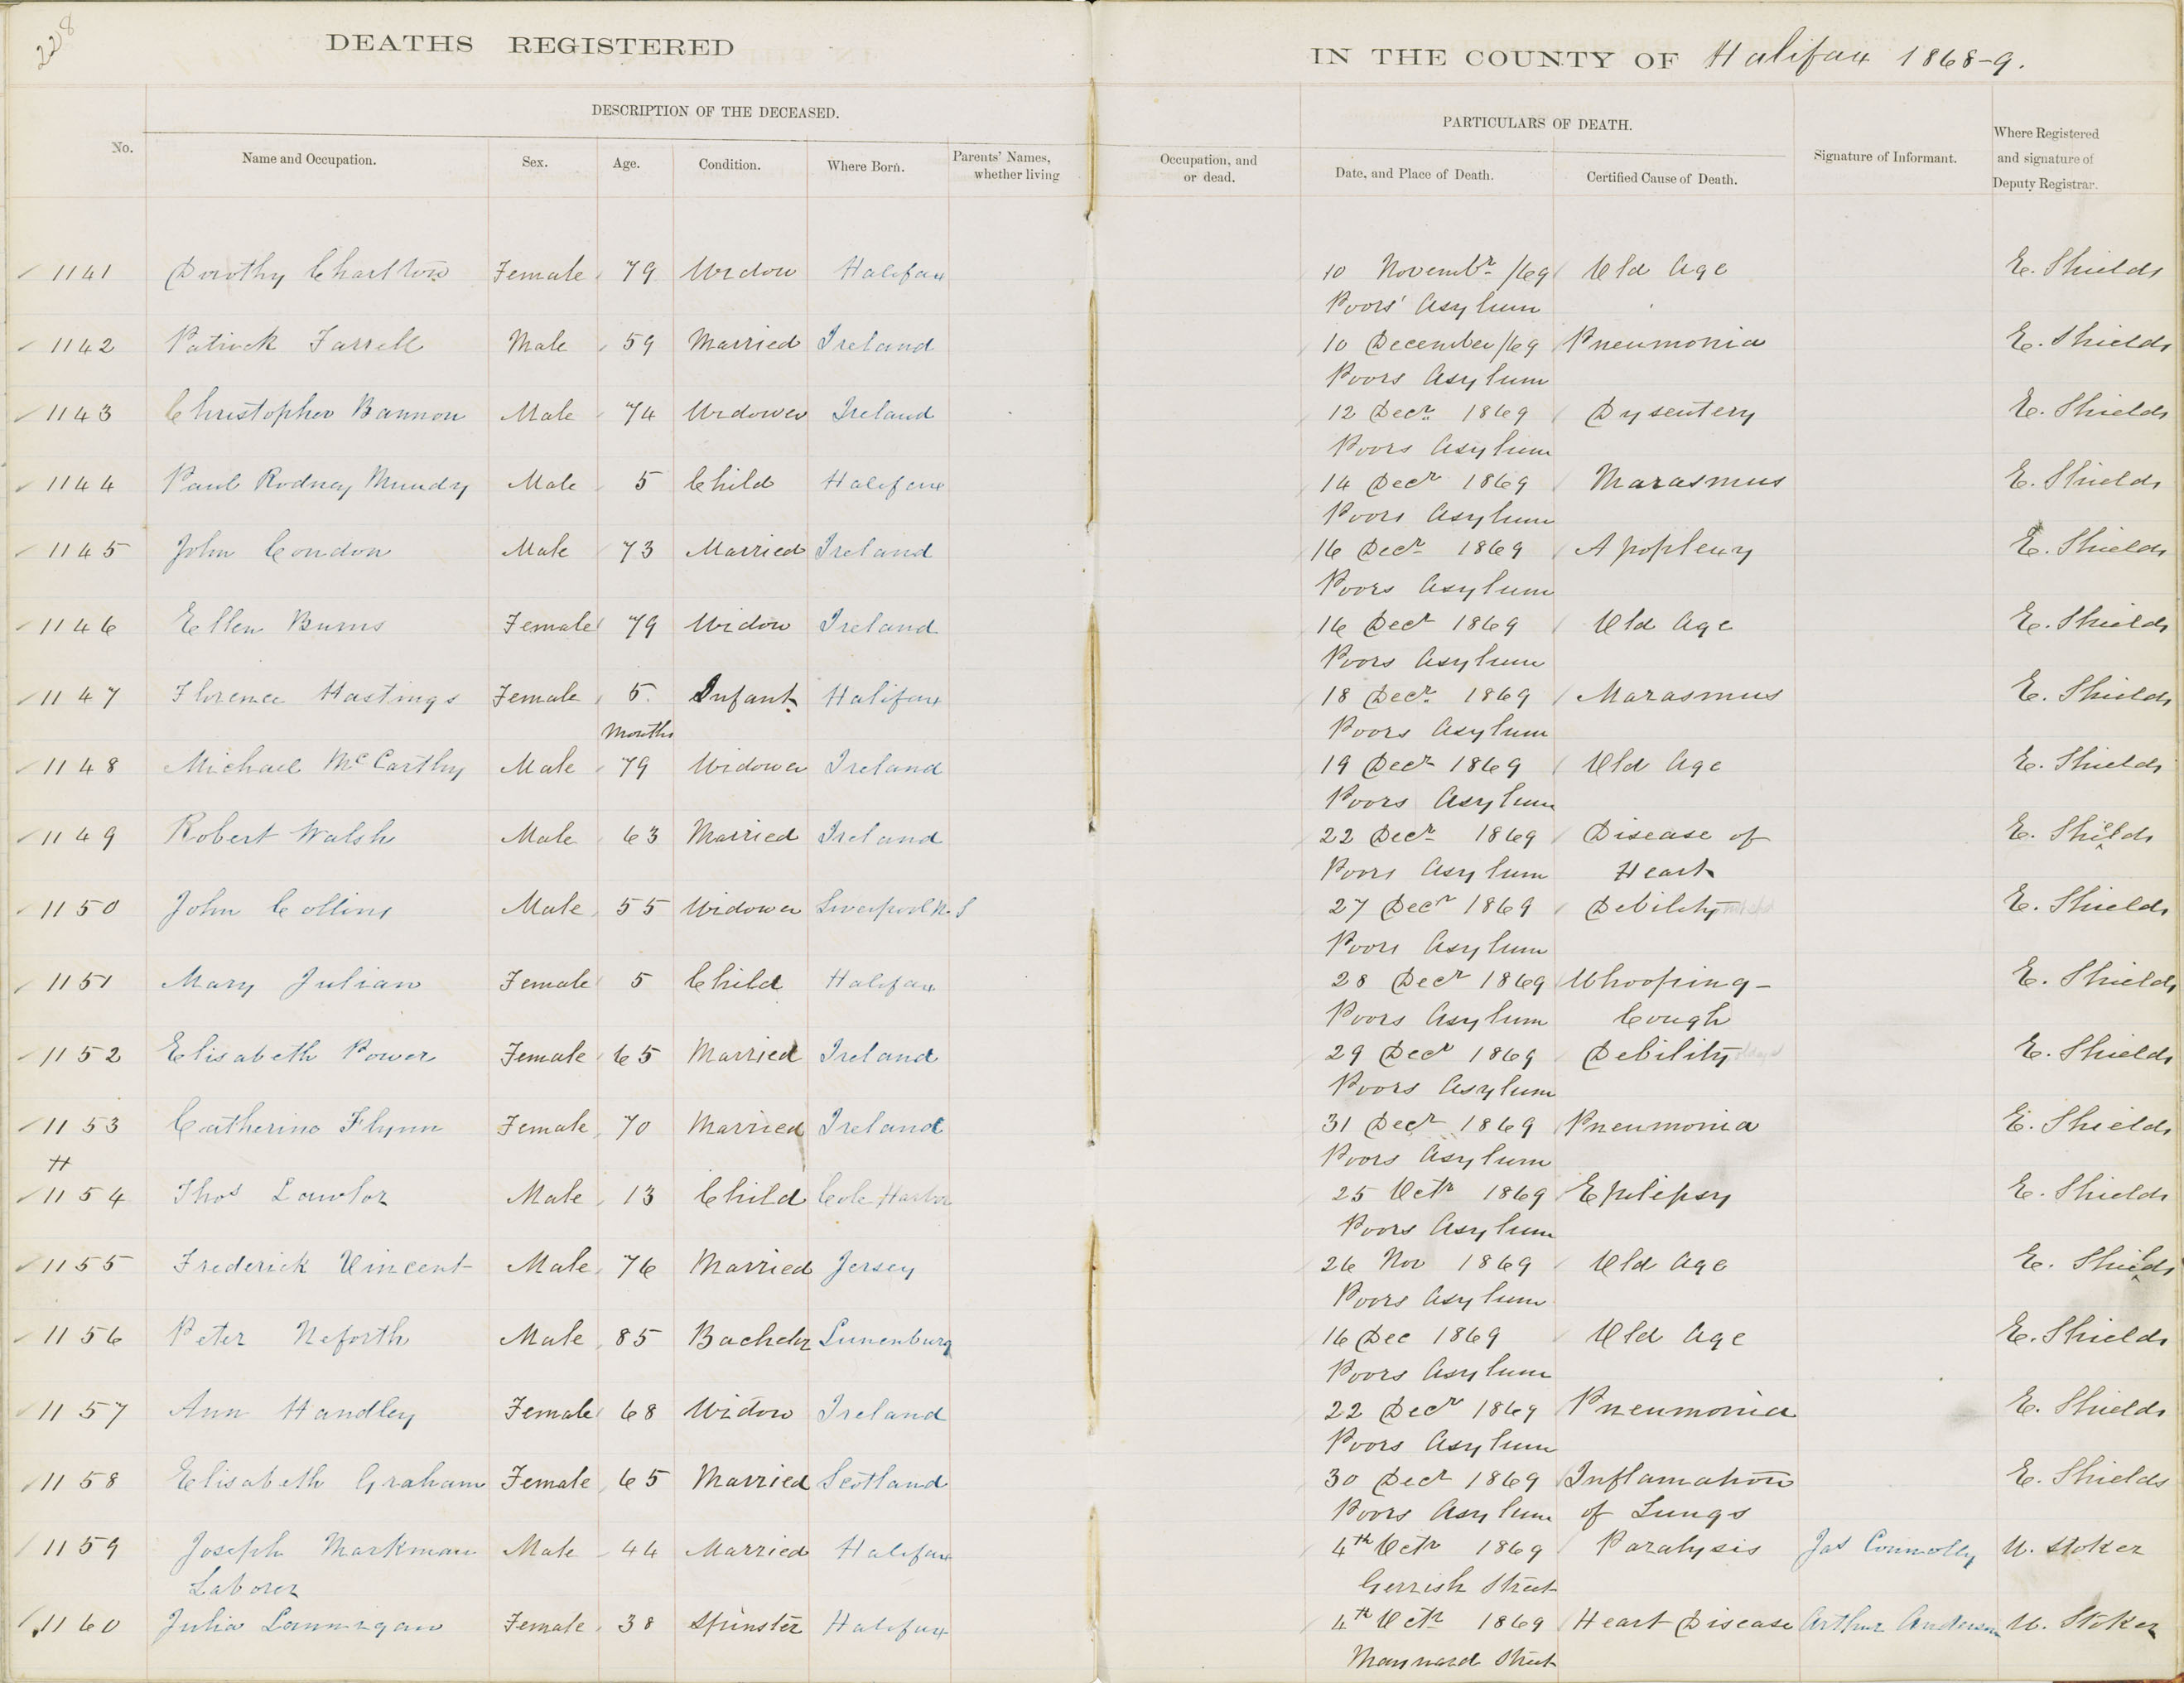 228
DEATHS REGISTERED IN THE COUNTY OF Halifax 1868-9.
DESCRIPTION OF THE DECEASED. PARTICULARS OF DEATH.
No. Name and Occupation. Sex. Age. Condition. Where Born. Parents' Names, whether living Occupation, and or dead. Date, and Place of Death. Certified Cause of Death. Signature of Informant. Where Registered and signature of Deputy Registrar.
1141 Dorothy Charlton Female 79 Widow Halifax 10 Novembr /69 Old Age E. Shields
Poors' Asylum
1142 Patrick Farrell Male 59 Married Ireland 10 December /69 Pneumonia E. Shields
Poors Asylum
1143 Christopher Bannon Male 74 Widower Ireland 12 Decr 1869 Dysentery E. Shields
Poors Asylum
1144 Paul Rodney Mundy Male 5 Child Halifax 14 Decr 1869 Marasmus E. Shields
Poors Asylum
1145 John Condon Male 73 Married Ireland 16 Decr 1869 Apoplexy E. Shields
Poors Asylum
1146 Ellen Burns Female 79 Widow Ireland 16 Decr 1869 Old Age E. Shields
Poors Asylum
1147 Florence Hastings Female 5 Infant Halifax 18 Decr 1869 Marasmus E. Shields
Months Poors Asylum
1148 Michael McCarthy Male 79 Widower Ireland 19 Decr 1869 Old Age E. Shields
Poors Asylum
1149 Robert Walsh Male 63 Married Ireland 22 Decr 1869 Disease of E. Shields
Poors Asylum Heart
1150 John Collins Male 55 Widower Liverpool N.S 27 Decr 1869 Debility E. Shields
Poors Asylum
1151 Mary Julian Female 5 Child Halifax 28 Decr 1869 Whooping- E. Shields
Poors Asylum Cough
1152 Elisabeth Power Female 65 Married Ireland 29 Decr 1869 Debility E. Shields
Poors Asylum
1153 Catherine Flynn Female 70 Married Ireland 31 Decr 1869 Pneumonia E. Shields
Poors Asylum
1154 Thos Lawlor Male 13 Child Cole Harbor 25 Octr 1869 Epilepsy E. Shields
Poors Asylum
1155 Frederick Vincent Male 76 Married Jersey 26 Nov 1869 Old Age E. Shields
Poors Asylum
1156 Peter Neforth Male 85 Bachelor Lunenburg 16 Dec 1869 Old Age E. Shields
Poors Asylum
1157 Ann Handley Female 68 Widow Ireland 22 Decr 1869 Pneumonia E. Shields
Poors Asylum
1158 Elisabeth Graham Female 65 Married Scotland 30 Decr 1869 Inflamation E. Shields
Poors Asylum of Lungs
1159 Joseph Markman Male 44 Married Halifax 4th Octr 1869 Paralysis Jas Connolly U. Stoker
Laborer Gerrish Street
1160 Julia Lannigan Female 38 Spinster Halifax 4th Octr 1869 Heart Disease Arthur Anderson U. Stoker
Maynard Street